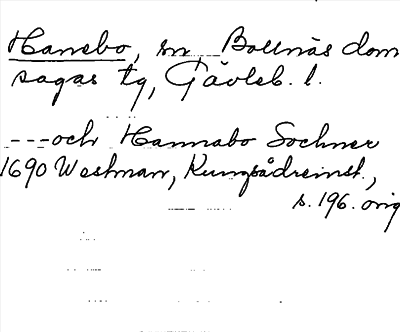 Hanebo, sn Bollnäs dom
sagas tg, Gävleb. l.
---och Hannabo Sochner
1690 Westman, Kungsådreinst.,
s. 196. orig